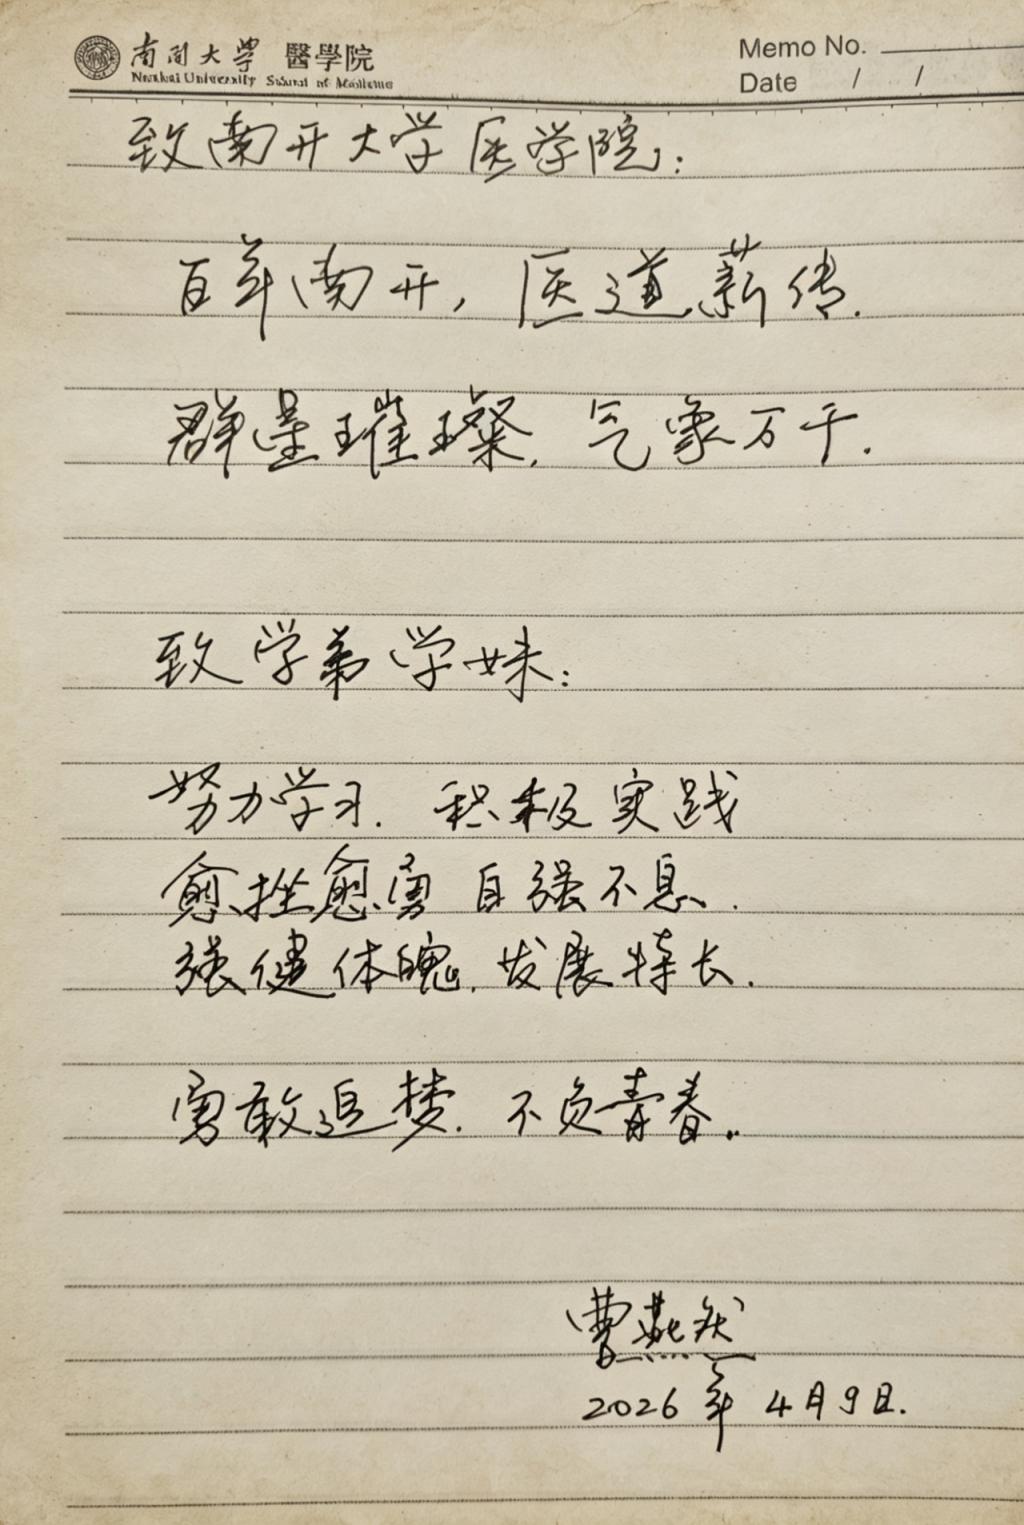 南開大學 醫學院
Nankai University School of Medicine
Memo No.
Date / /
致南开大学医学院:
百年南开,医道薪传.
群星璀璨,气象万千.
致学弟学妹:
努力学习.积极实践
愈挫愈勇 自强不息.
强健体魄.发展特长.
勇敢追梦.不负青春..
曹燕
2026年4月9日.